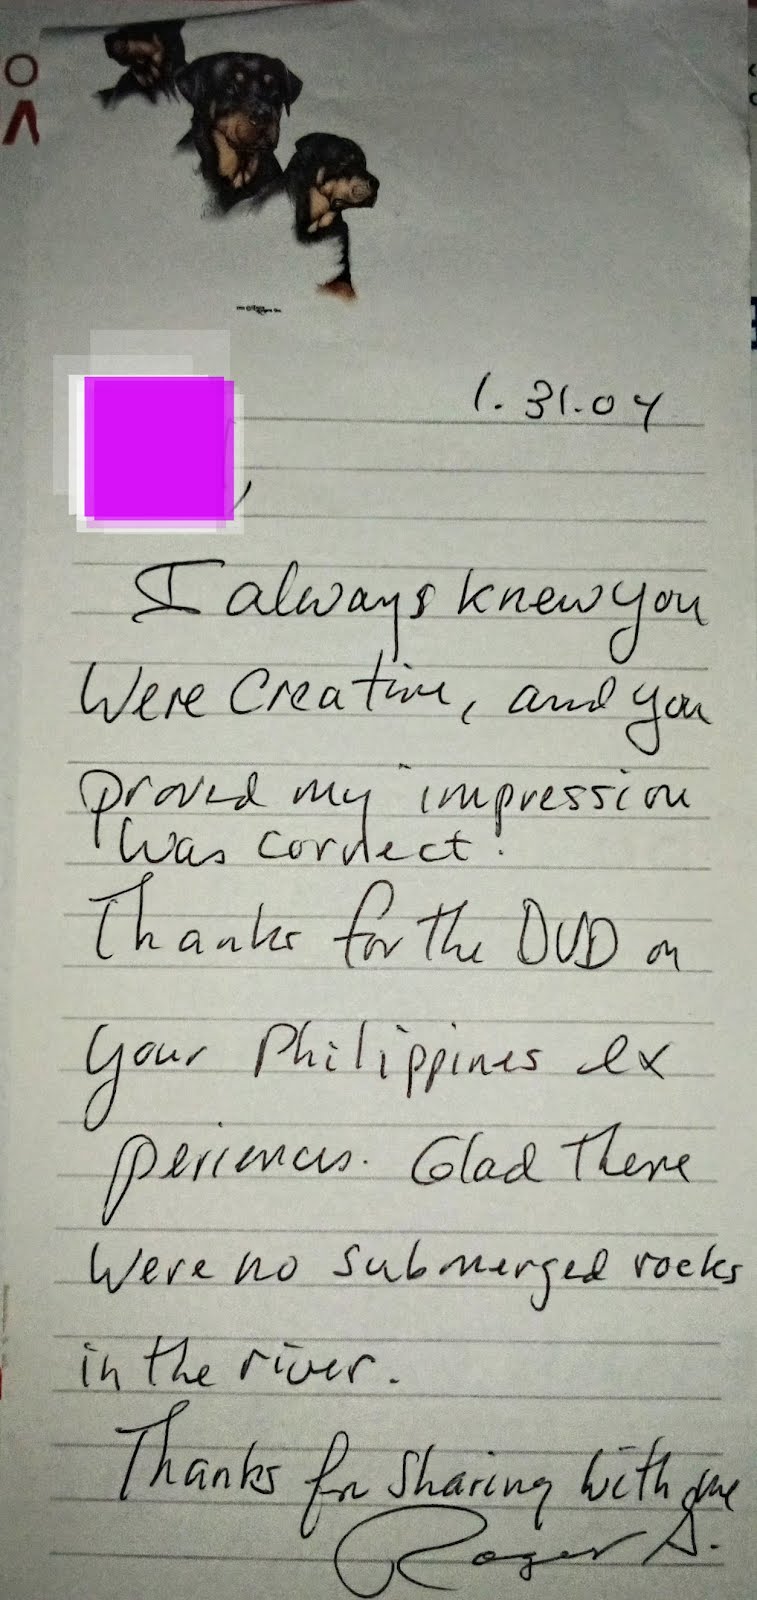 1.31.04
,
I always knew you
were creative, and you
proved my impression
was correct!
Thanks for the DVD on
your Philippines ex
periences. Glad there
were no submerged rocks
in the river.
Thanks for sharing with me
Roger S.